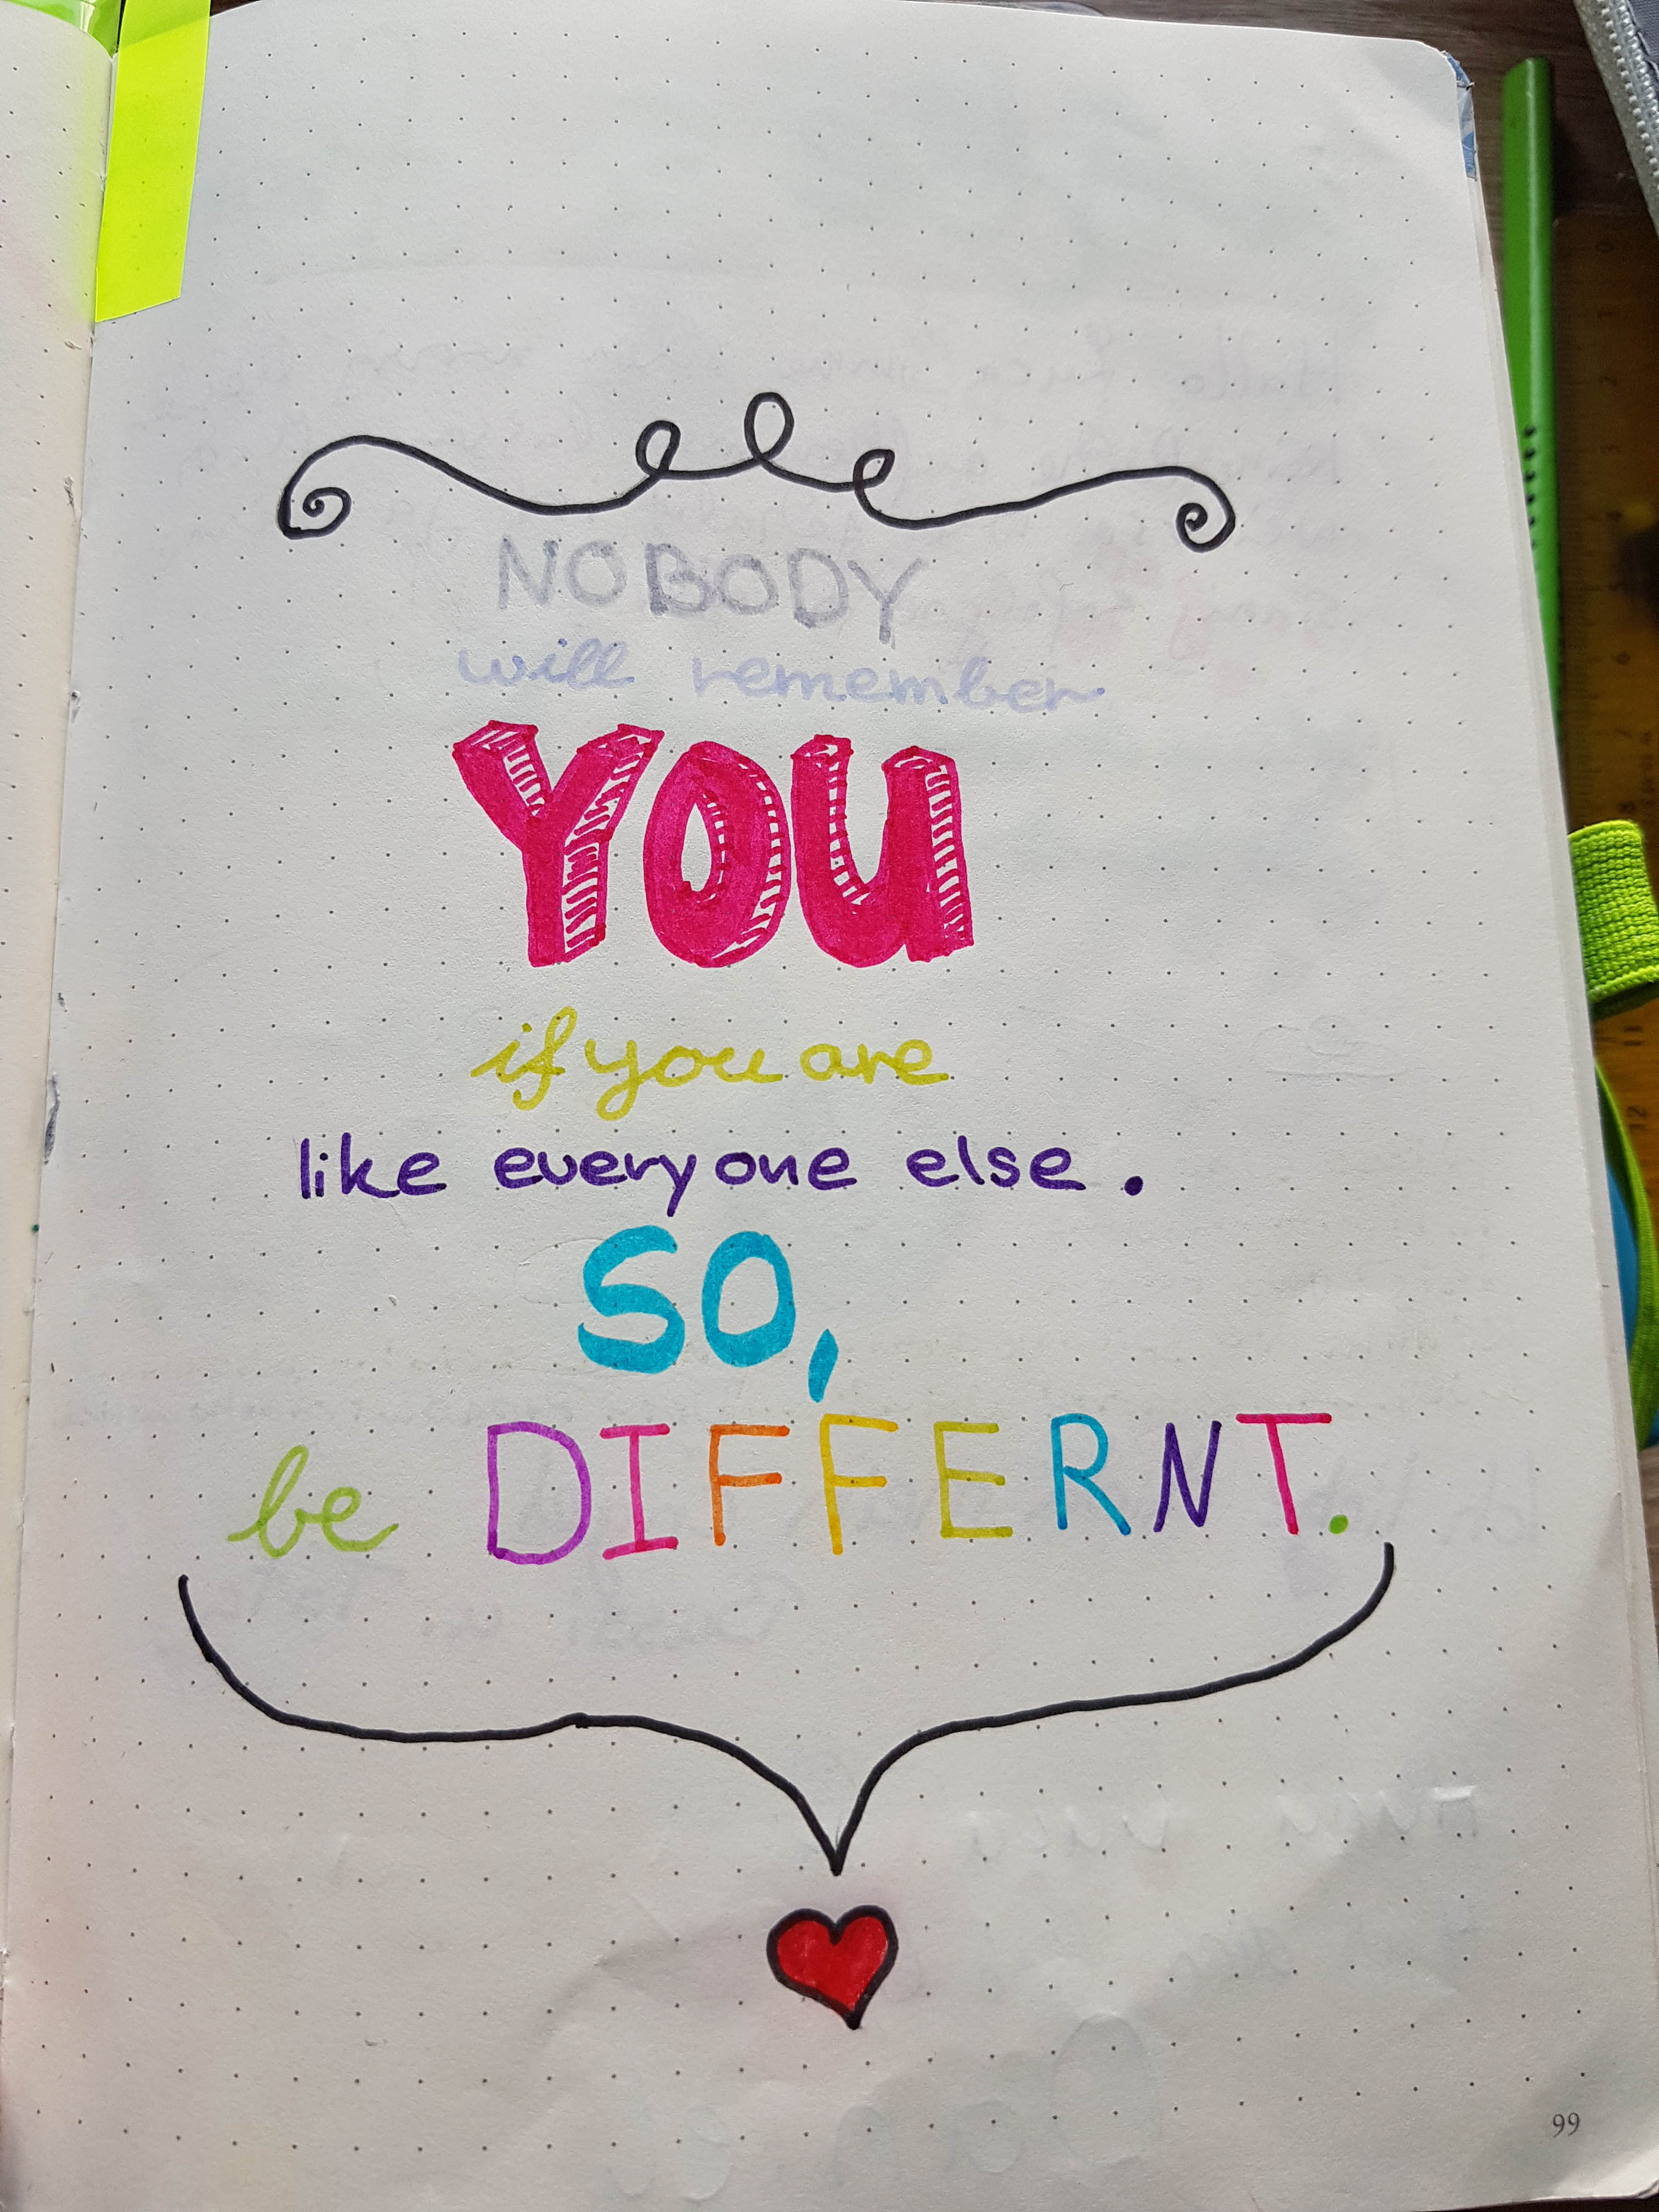 NOBODY
will remember
YOU
if you are
like everyone else.
SO,
be DIFFERNT.
99